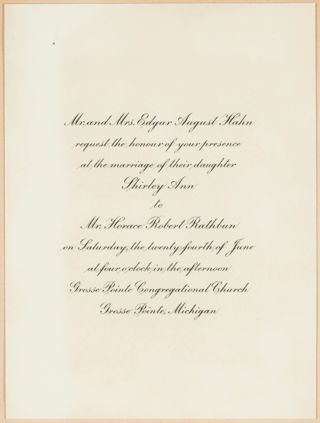 Mr. and Mrs. Edgar August Hahn
request the honour of your presence
at the marriage of their daughter
Shirley Ann
to
Mr. Horace Robert Rathbun
on Saturday, the twenty-fourth of June
at four o'clock in the afternoon
Grosse Pointe Congregational Church
Grosse Pointe, Michigan